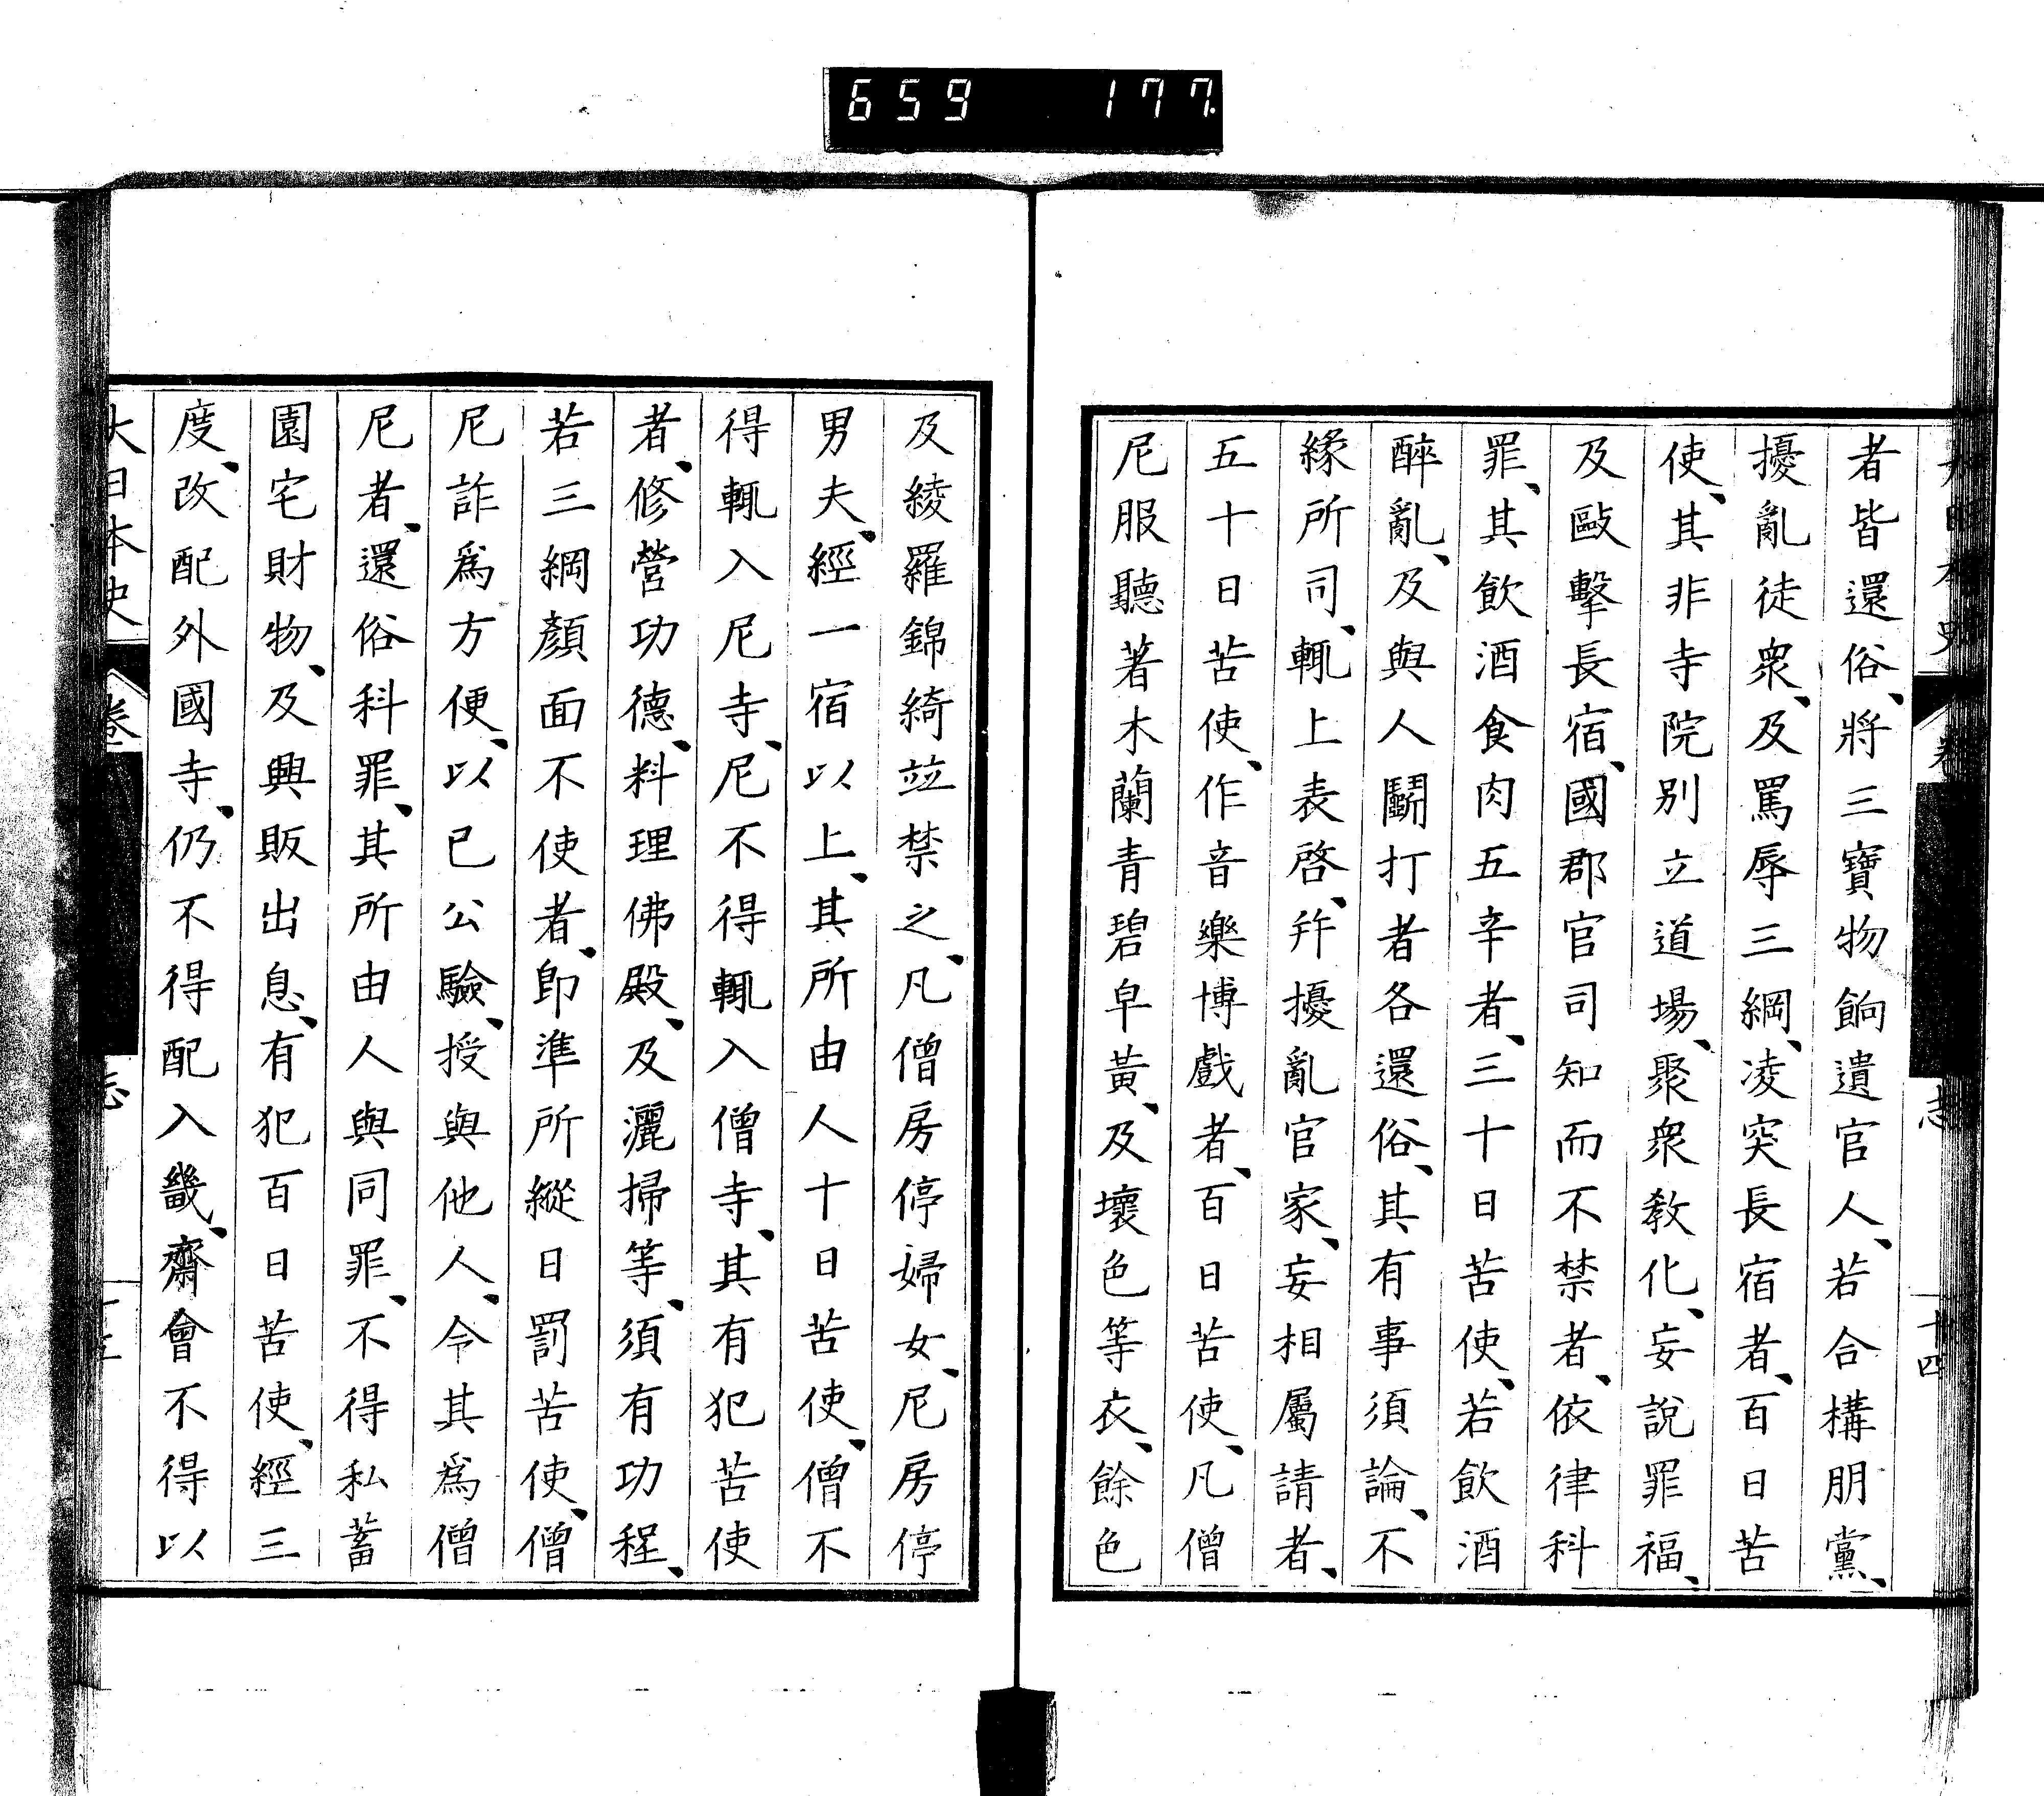 659 177.
者皆還俗、將三寶物餉遺官人、若合構朋黨、
擾亂徒衆、及罵辱三綱、凌突長宿者、百日苦
使、其非寺院別立道場、聚衆教化、妄說罪福、
及毆擊長宿、國郡官司知而不禁者、依律科
罪、其飲酒食肉五辛者、三十日苦使、若飲酒
醉亂、及與人鬭打者各還俗、其有事須論、不
緣所司、輒上表啓、幷擾亂官家、妄相屬請者、
五十日苦使、作音樂博戲者、百日苦使、凡僧
尼服聽著木蘭青碧皁黃、及壞色等衣、餘色
及綾羅錦綺竝禁之、凡僧房停婦女、尼房停
男夫、經一宿以上、其所由人十日苦使、僧不
得輒入尼寺、尼不得輒入僧寺、其有犯苦使
者、修營功德、料理佛殿、及灑掃等、須有功程、
若三綱顏面不使者、卽準所縱日罰苦使、僧
尼詐爲方便、以已公驗、授與他人、令其爲僧
尼者、還俗科罪、其所由人與同罪、不得私蓄
園宅財物、及興販出息、有犯百日苦使、經三
度、改配外國寺、仍不得配入畿、齋會不得以
大日本史 卷 志
十四